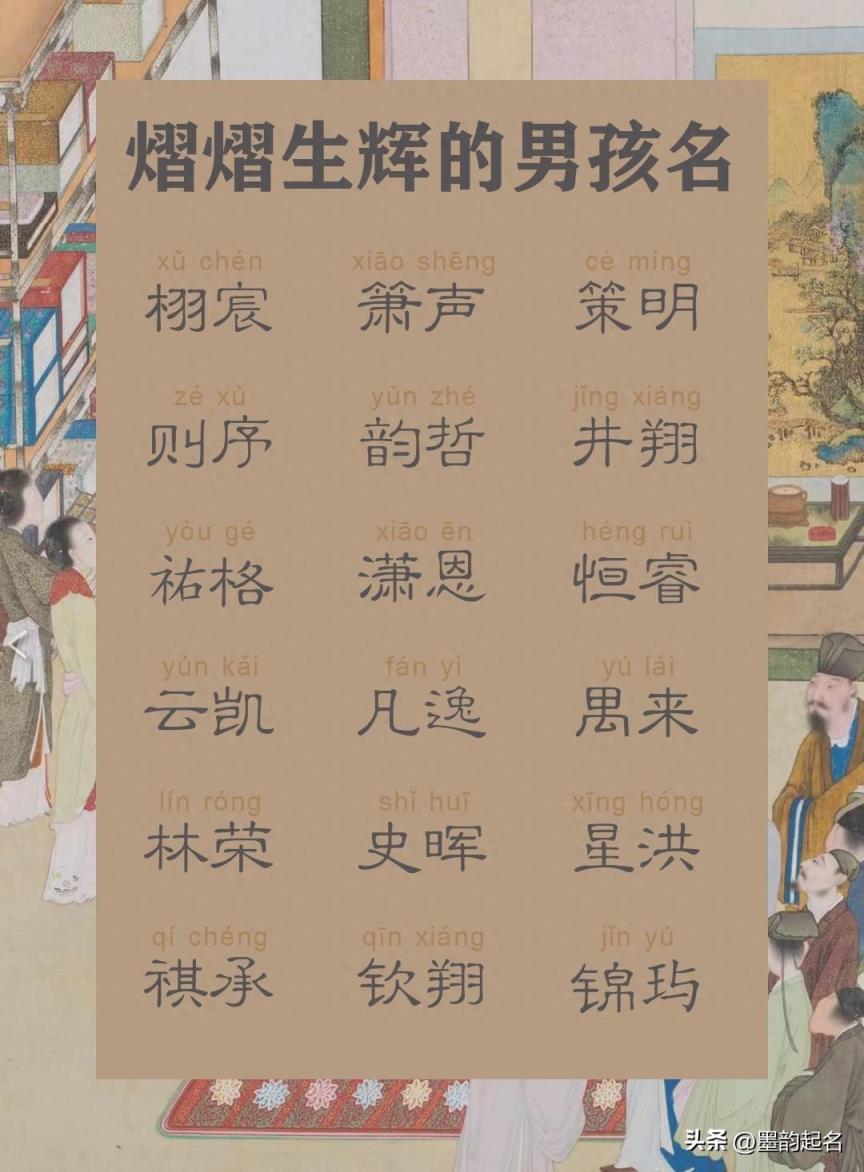 熠熠生辉的男孩名
xǔ chén xiāo shēng cè míng
栩宸 箫声 策明
zé xù yùn zhé jǐng xiáng
则序 韵哲 井翔
yòu gé xiāo ēn héng ruì
祐格 潇恩 恒睿
yún kǎi fán yì yú lái
云凯 凡逸 禺来
lín róng shǐ huī xīng hóng
林荣 史晖 星洪
qí chéng qīn xiáng jǐn yú
祺承 钦翔 锦玙
头条 @墨韵起名